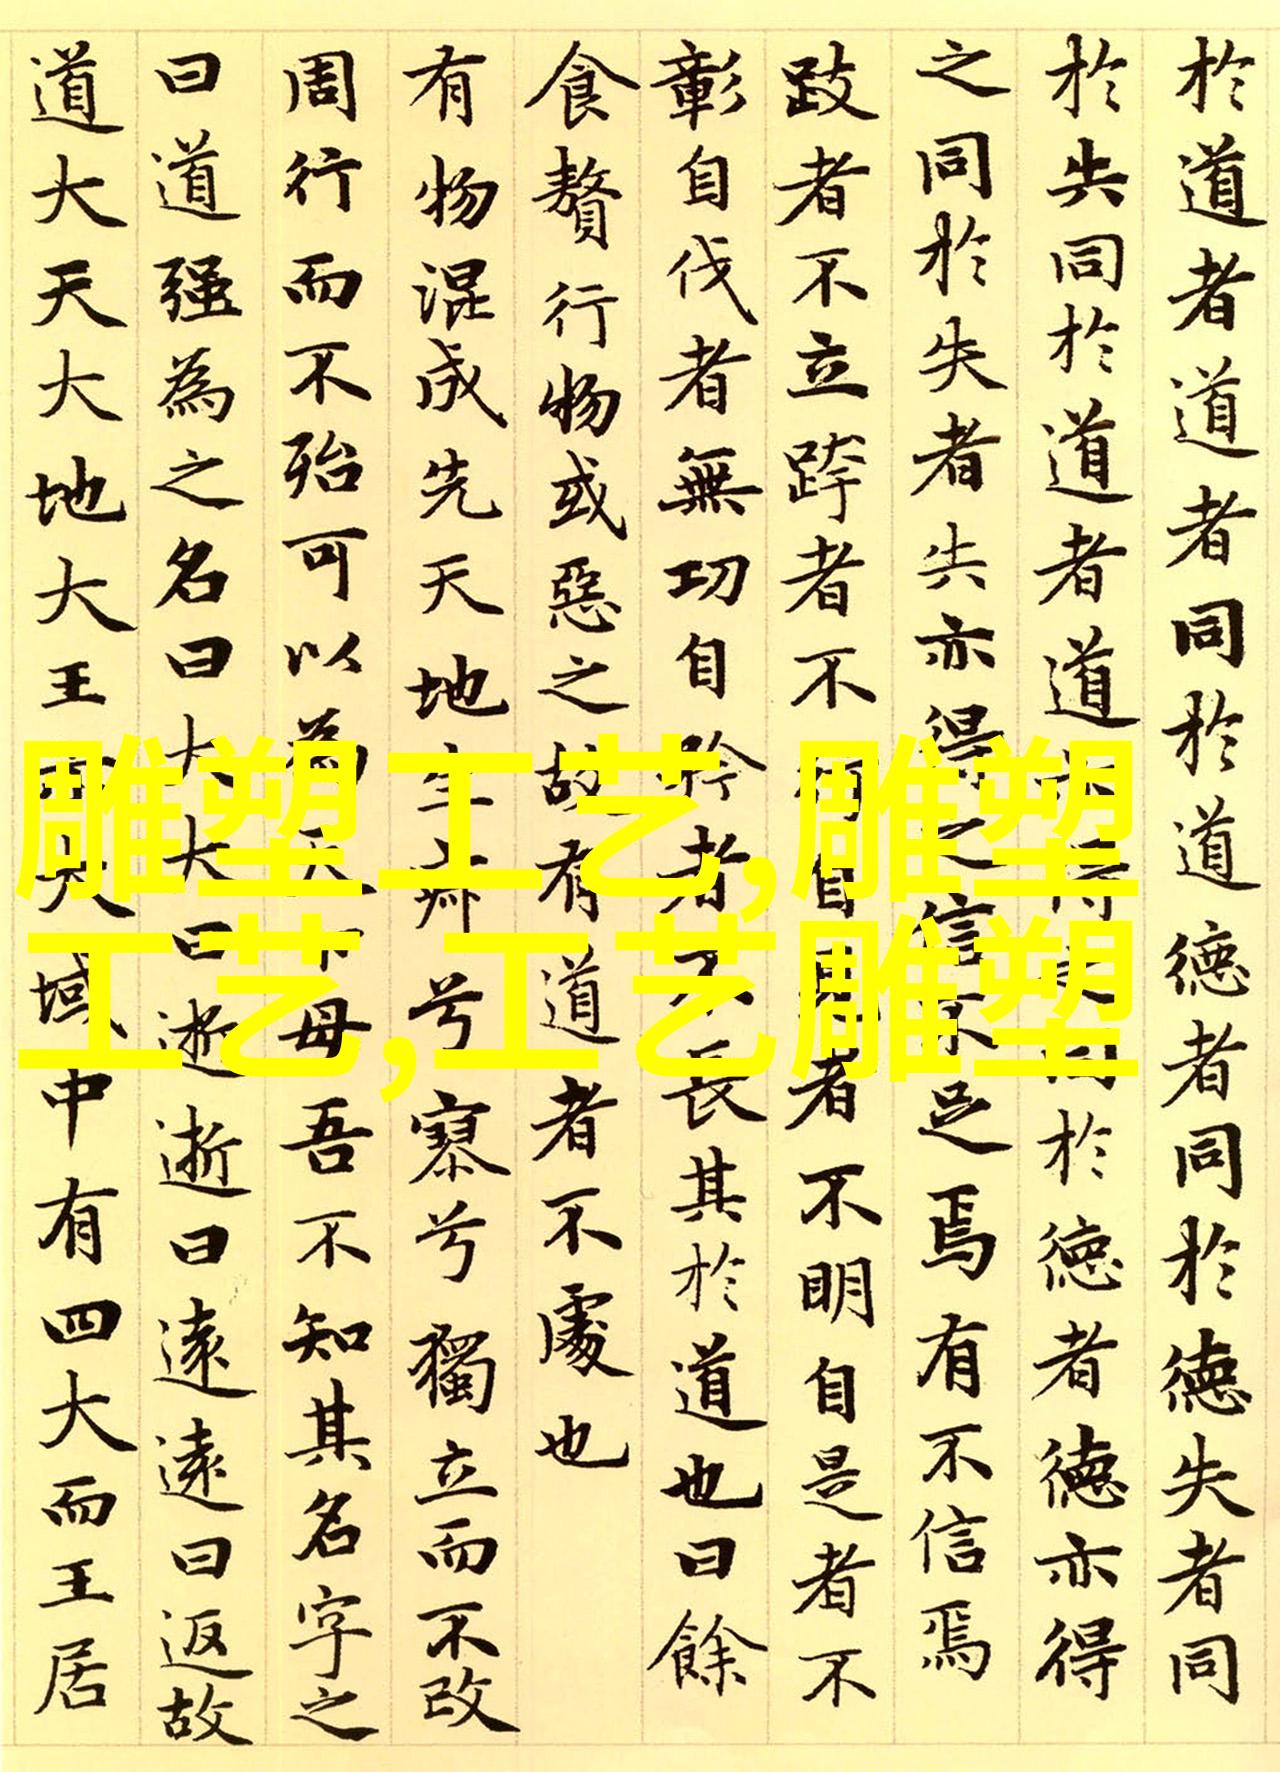 於道者道者同於道德者同於德失者同
於失同於道者道亦得之同於德者德亦得
之同於失者失亦得之信不足焉有不信焉
跂者不立跨者不行自見者不明自是者不
彰自伐者無功自矜者不長其於道也曰餘
食贅行物或惡之故有道者不處也
有物混成先天地生寂兮寥兮獨立而不改
周行而不殆可以為天下母吾不知其名字之
曰道强為之名曰大大曰逝逝曰遠遠曰返故
道大天大地大王亦大域中有四大而王居
雕塑工艺,雕塑
工艺,工艺雕塑